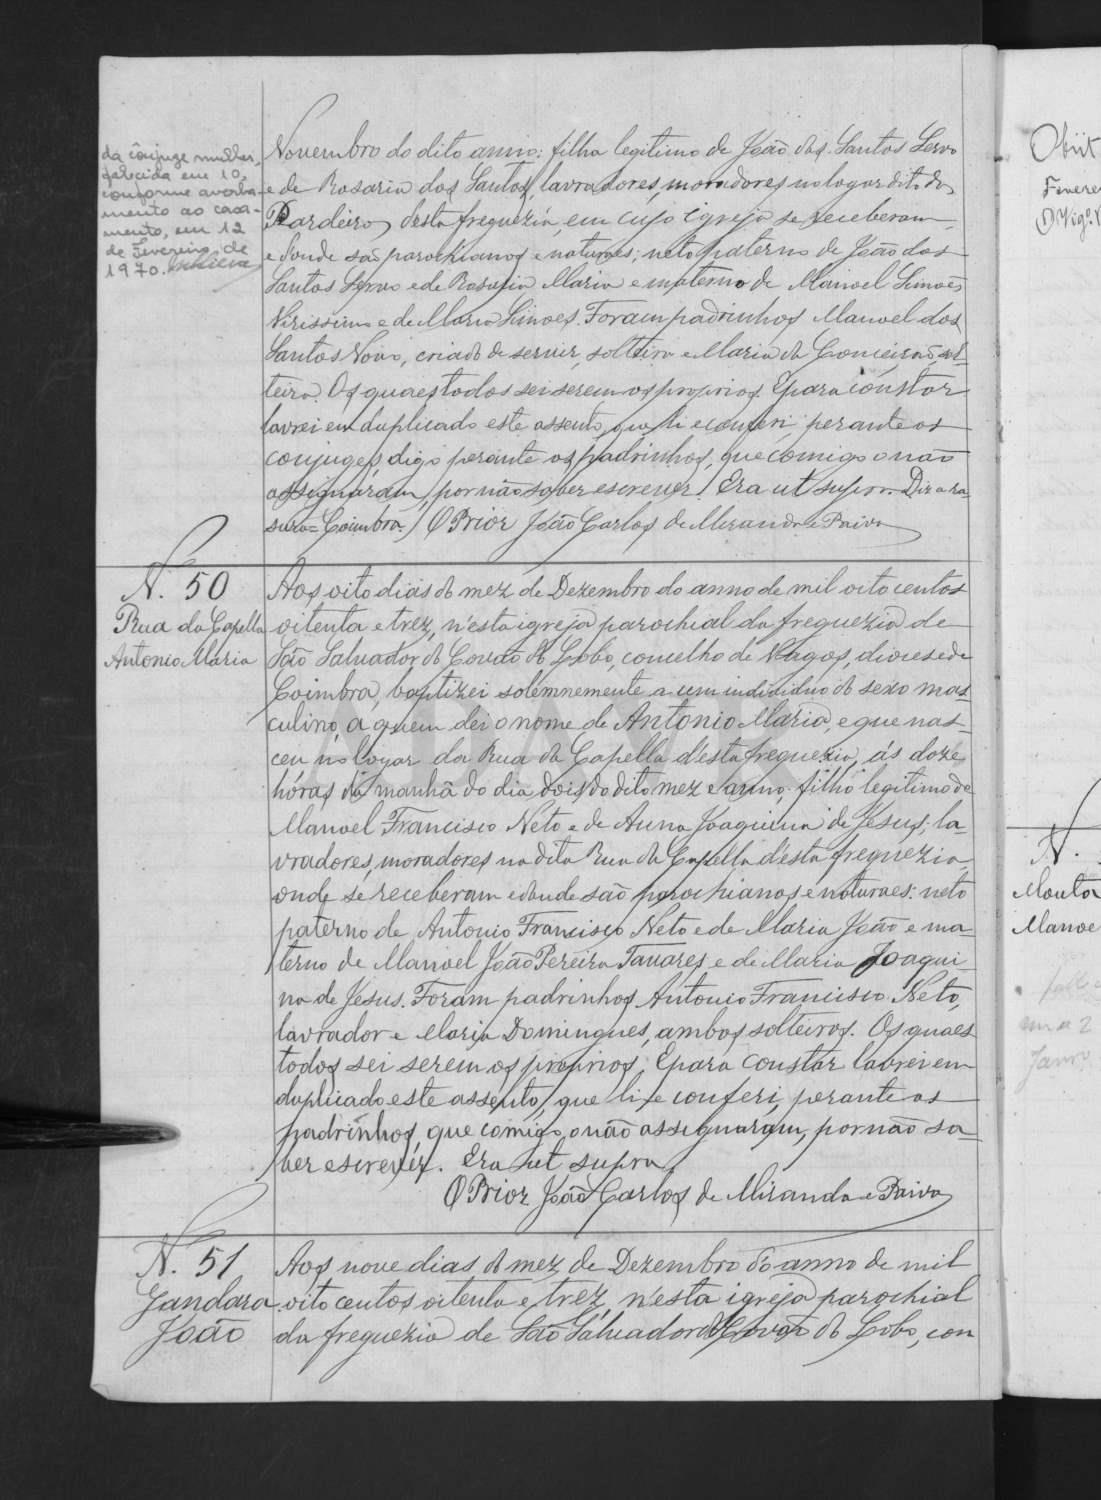 da cônjuge mulher,
falecida em 10,
conforme averba-
mento ao casa-
mento, em 12
de Fevereiro de
1970.
Novembro do dito anno: filho legitimo de João dos Santos Servo
e de Rosaria dos Santos, lavradores, moradores no logar dito do
Pardeiro, desta freguezia, em cuja igreja se receberam
e donde são parochianos e naturaes; neto paterno de João dos
Santos Servo e de Rosaria Maria e materno de Manoel Simões
Virissimo e de Maria Simões. Foram padrinhos Manoel dos
Santos Novo, criado de servir, solteiro e Maria da Conceição, sol-
teira. Os quaes todos sei serem os proprios. E para constar
lavrei em duplicado este assento, que li e conferi, perante os
conjuges, digo perante os padrinhos, que comigo o não
assignaram, por não saber escrever. Era ut supra. Diz a ra-
sura = Coimbra. O Prior João Carlos de Miranda e Paiva
N. 50
Rua da Capella
Antonio Maria
Aos oito dias do mez de Dezembro do anno de mil oito centos
oitenta e trez, n'esta igreja parochial da freguezia de
São Salvador do Covão do Lobo, concelho de Vagos, diocese de
Coimbra, baptizei solemnemente a um individuo do sexo mas-
culino, a quem dei o nome de Antonio Maria, e que nas-
ceu no logar da Rua da Capella d'esta freguezia, ás doze
hóras da manhã do dia dois do dito mez e anno, filho legitimo de
Manoel Francisco Neto e de Anna Joaquina de Jesus, la-
vradores, moradores na dita Rua da Capella d'esta freguezia,
onde se receberam e donde são parochianos e naturaes: neto
paterno de Antonio Francisco Neto e de Maria João e ma-
terno de Manoel João Pereira Tavares e de Maria Joaqui-
na de Jesus. Foram padrinhos Antonio Francisco Neto,
lavrador e Maria Domingues, ambos solteiros. Os quaes
todos sei serem os proprios. E para constar lavrei em
duplicado este assento, que li e conferi, perante os
padrinhos, que comigo o não assignaram, por não sa-
ber escrever. Era ut supra.
O Prior João Carlos de Miranda e Paiva
N. 51
Gandara
João
Aos nove dias do mez de Dezembro do anno de mil
oito centos oitenta e trez, n'esta igreja parochial
da freguezia de São Salvador do Covão do Lobo, con
Obiit
Feverei
O Vig.º
N.
Mouta
Manoe
em a 2